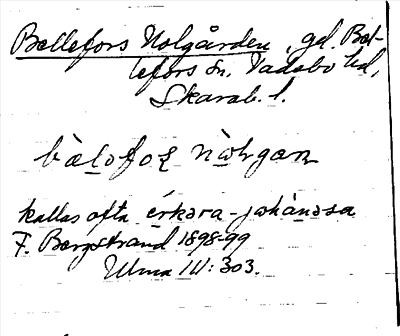 Bällefors Nolgården, gd. Bäl-
lefors sn, Vadsbo hd,
Skarab. l.
bàlofoʀ nàʜgan
kallas ofta érkəra-johànəsa
F. Bergstrand 1898-99
Ulma 111:303.